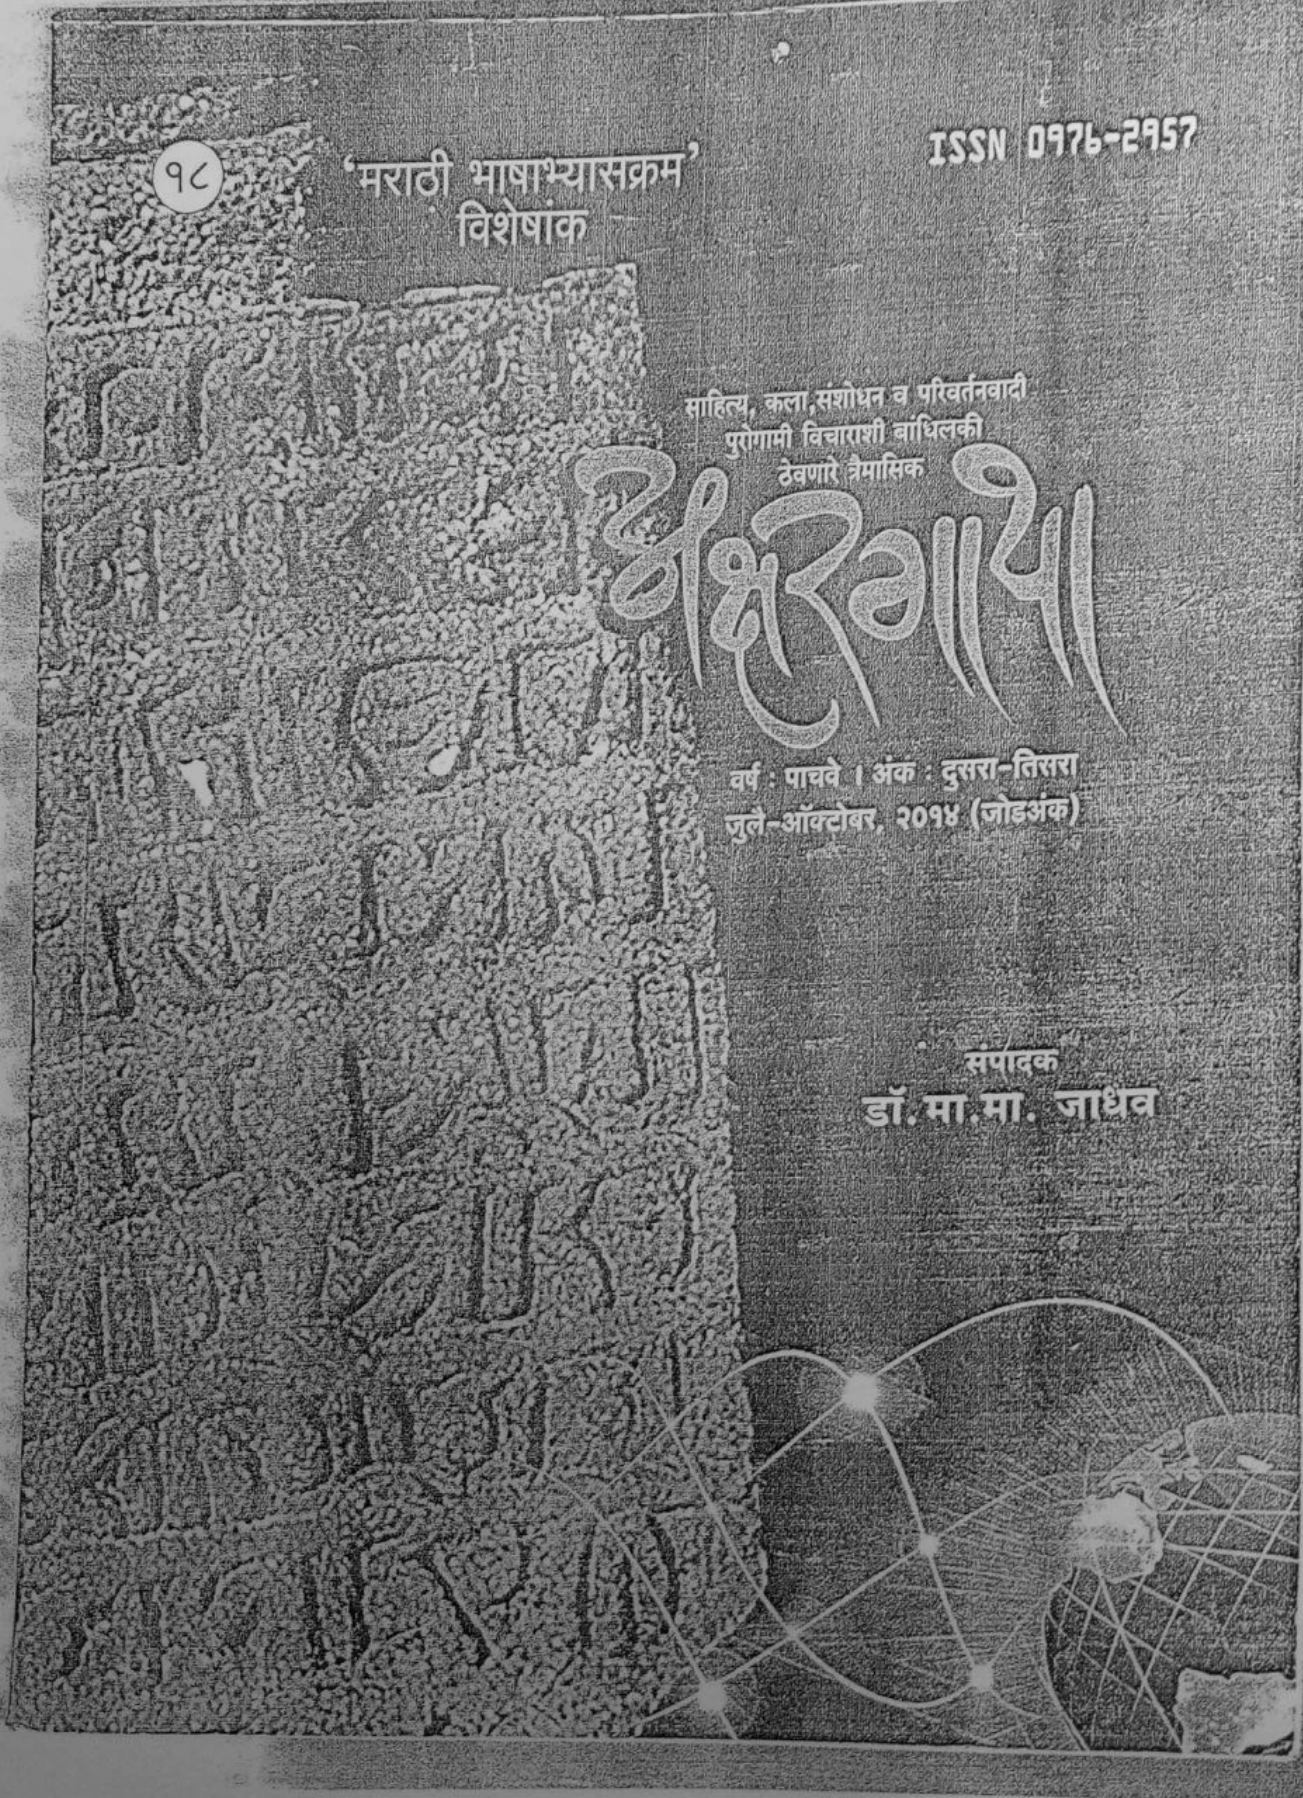 १८
'मराठी भाषाभ्यासक्रम'
विशेषांक
ISSN 0976-2957
साहित्य, कला,संशोधन व परिवर्तनवादी
पुरोगामी विचाराशी बांधिलकी
ठेवणारे त्रैमासिक
अक्षरगाथा
वर्ष : पाचवे । अंक : दुसरा-तिसरा
जुलै-ऑक्टोबर, २०१४ (जोडअंक)
संपादक
डॉ. मा.मा. जाधव